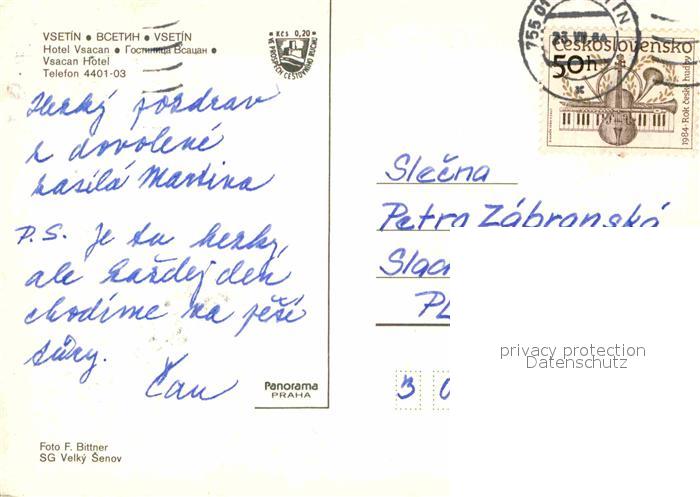 VSETÍN • ВСЕТИН • VSETÍN
Hotel Vsacan • Гостиница Всацан •
Vsacan Hotel
Telefon 4401-03
Kčs 0,20
VE PROSPĚCH ČESTOVNÍHO RUCHU
755 01
TÍN
23.VII.84
Československo
50h
1984 · Rok české hudby
Hezký pozdrav
z dovolené
zasílá Martina
P.S. Je tu hezky,
ale každej den
chodíme na pěší
túry.
Čau
Slečna
Petra Zábranská
Slad
PL
3 0
privacy protection
Datenschutz
Panorama
PRAHA
Foto F. Bittner
SG Velký Šenov